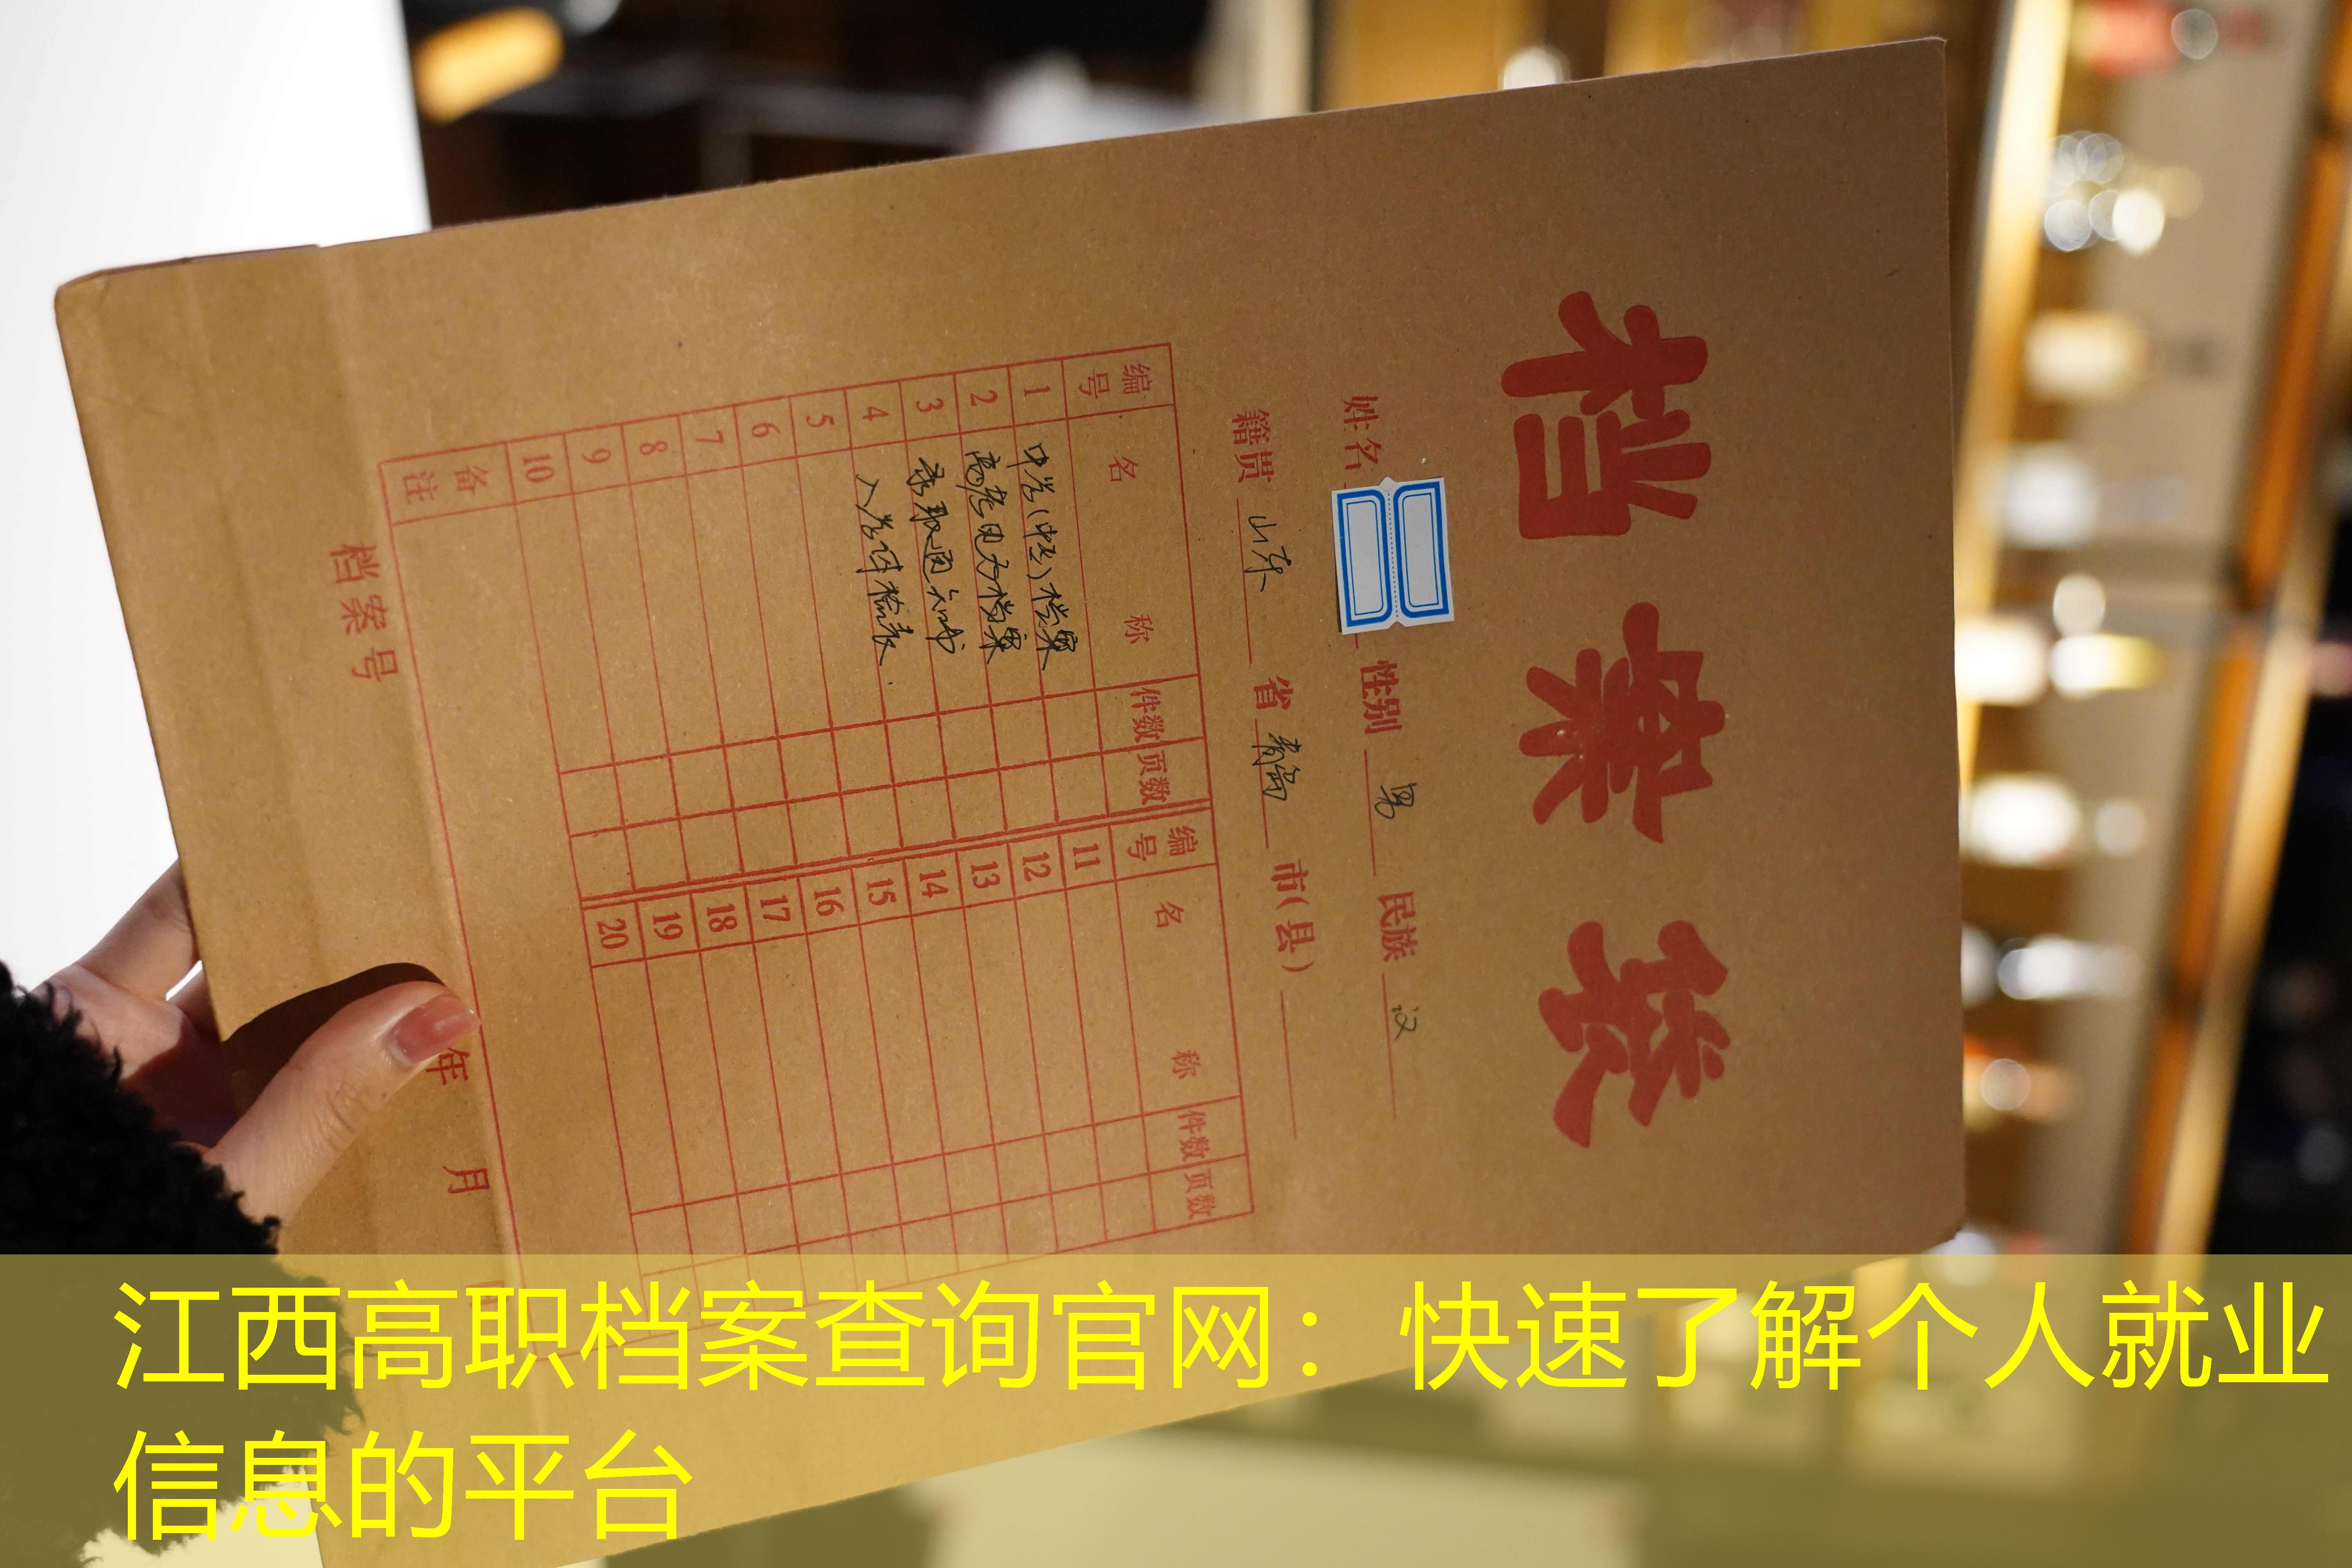 档案袋
姓名 性别 男 民族 汉
籍贯 山东 省 青岛 市(县)
编号 名称 件数 页数 编号 名称 件数 页数
1 中学(中专)档案 11
2 高考电子档案 12
3 录取通知书 13
4 入学体检表 14
5 15
6 16
7 17
8 18
9 19
10 20
备注
档案号 年 月
江西高职档案查询官网：快速了解个人就业
信息的平台